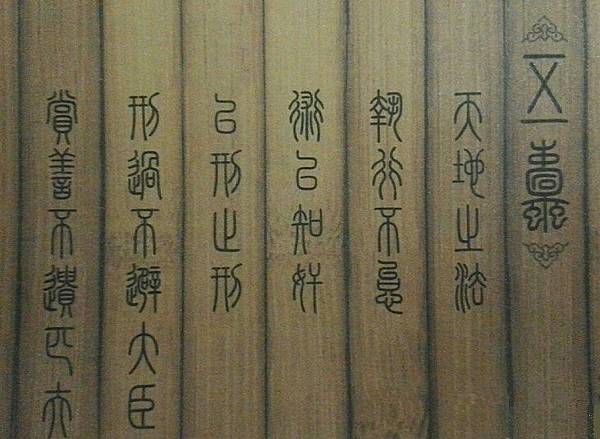 五蠹
天地之法
執行不怠
術以知奸
以刑止刑
刑過不避大臣
賞善不遺匹夫